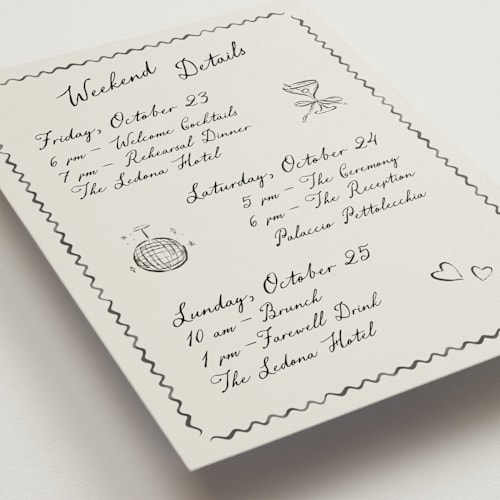 Weekend Details
Friday, October 23
6 pm – Welcome Cocktails
7 pm – Rehearsal Dinner
The Ledona Hotel
Saturday, October 24
5 pm – The Ceremony
6 pm – The Reception
Palaccio Pettolecchia
Sunday, October 25
10 am – Brunch
1 pm – Farewell Drink
The Ledona Hotel